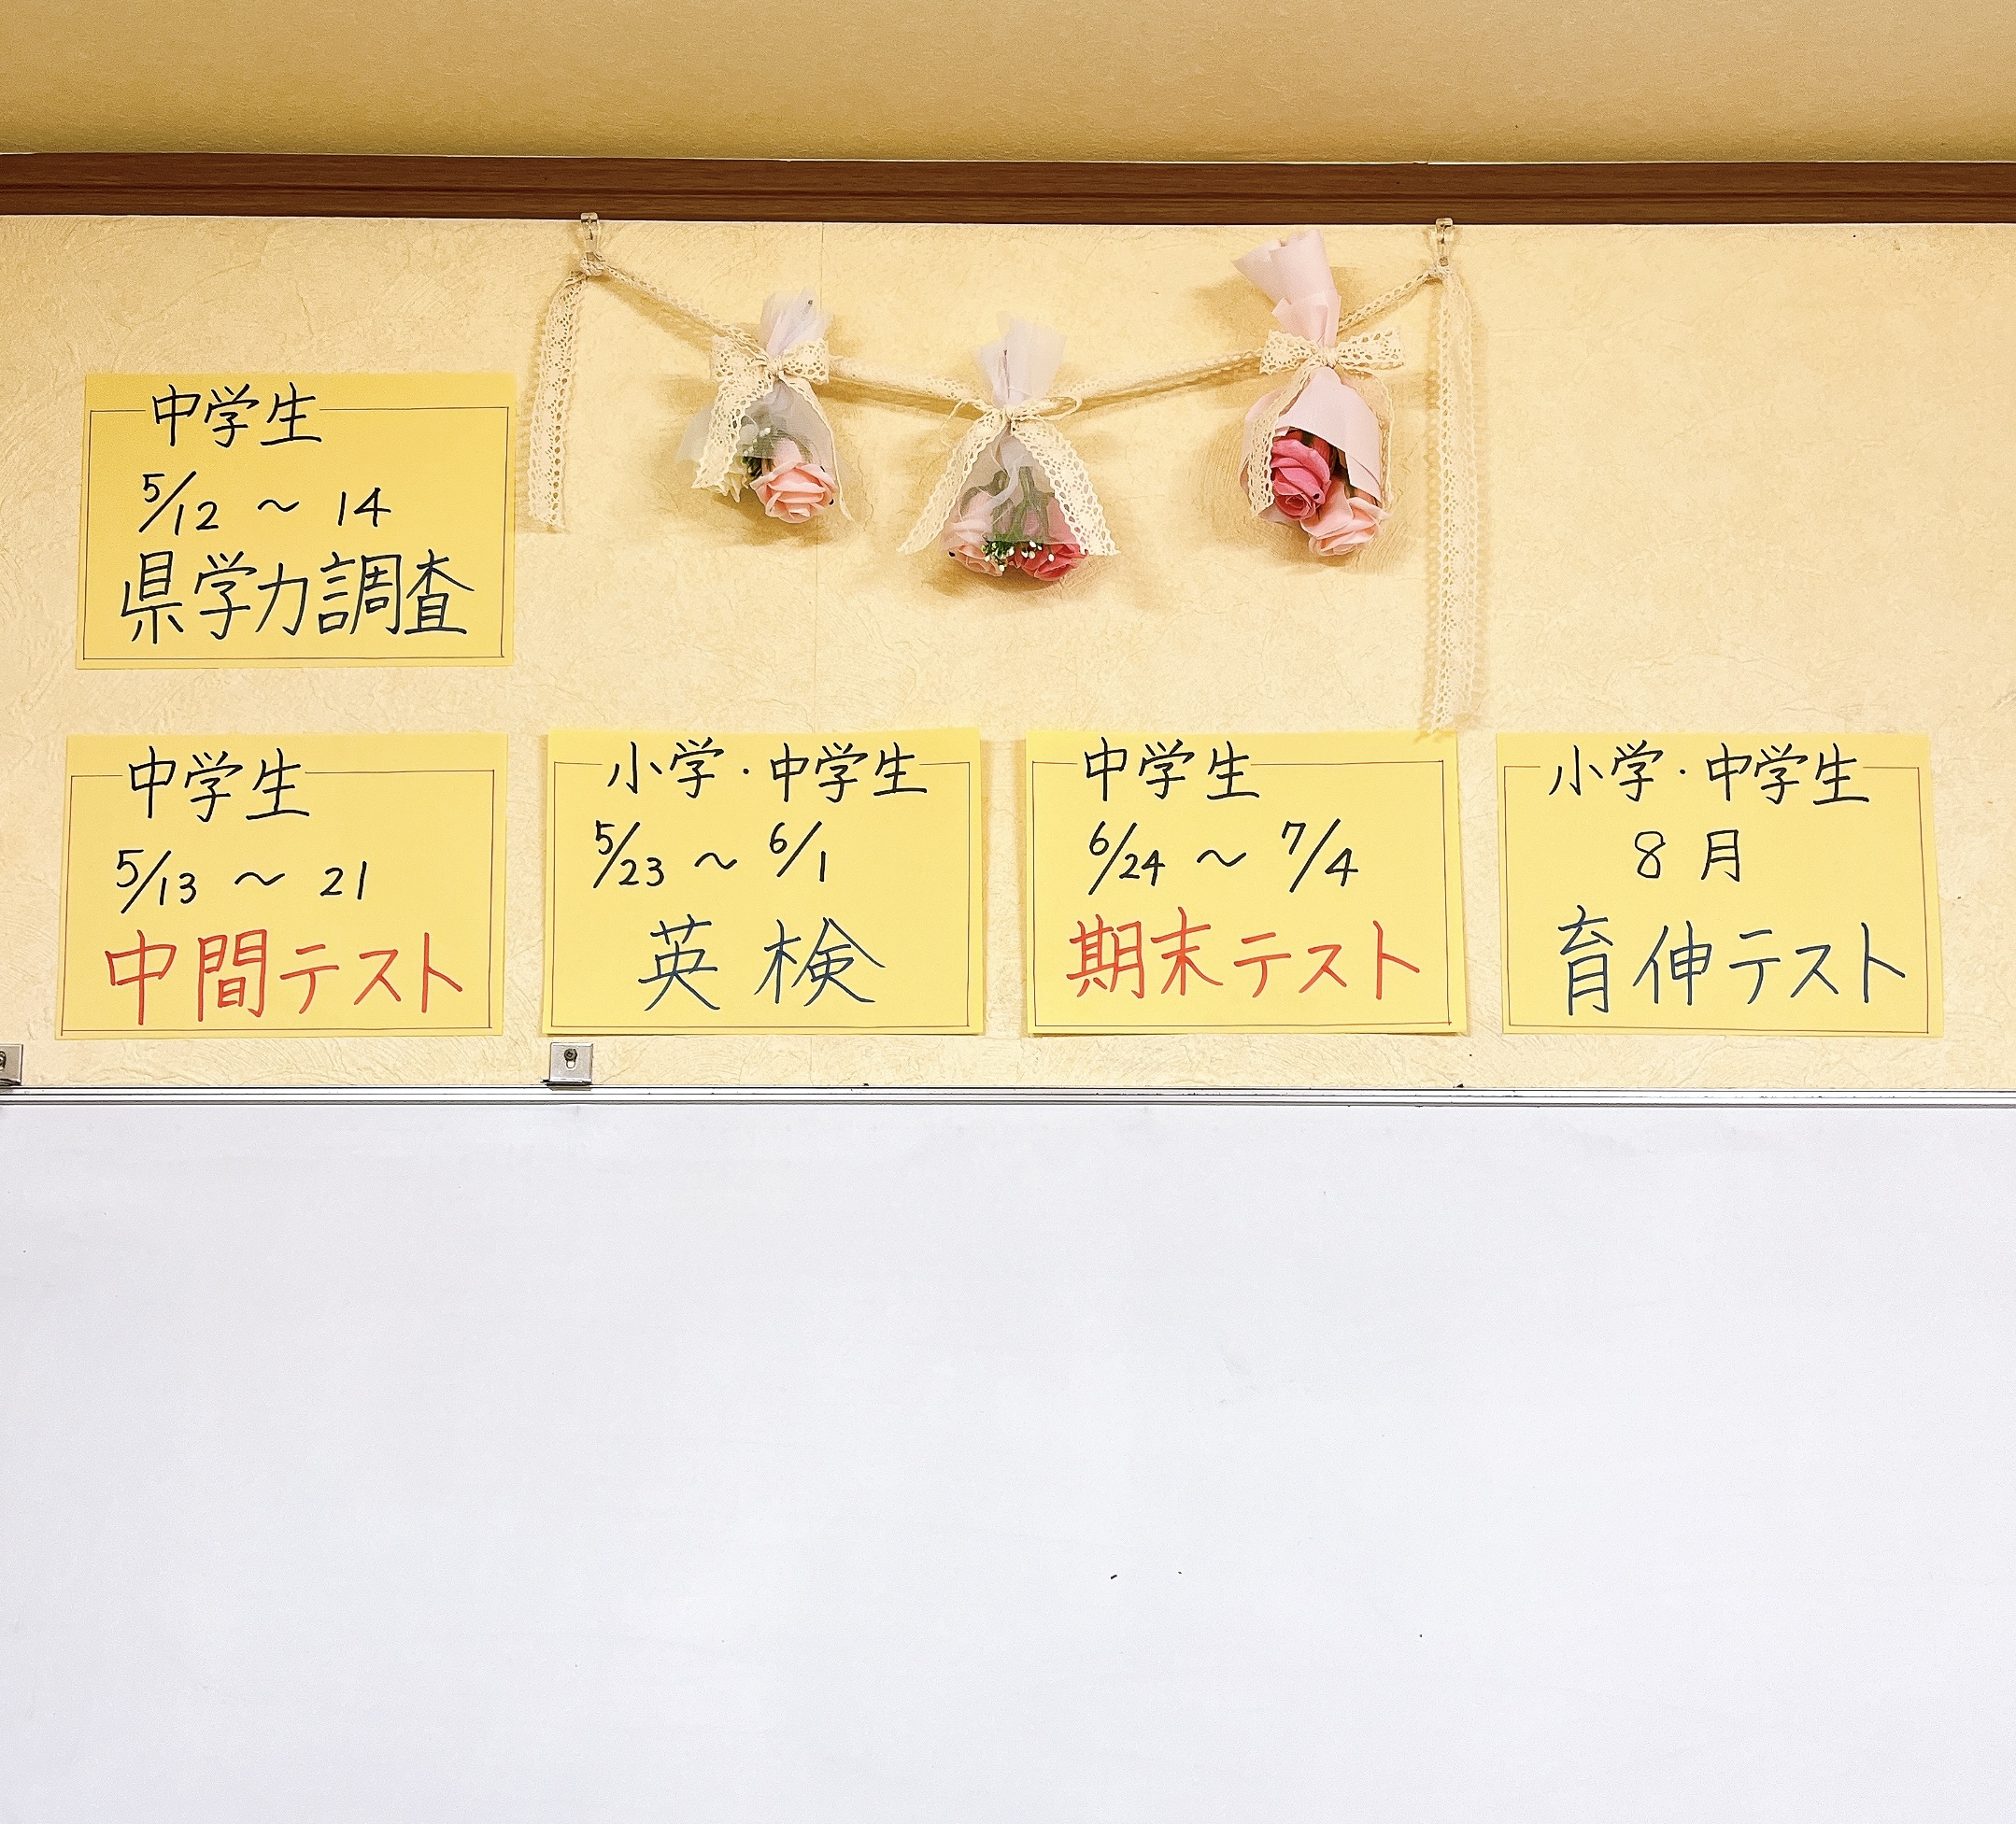 中学生
5/12 〜 14
県学力調査
中学生
5/13 〜 21
中間テスト
小学・中学生
5/23 〜 6/1
英検
中学生
6/24 〜 7/4
期末テスト
小学・中学生
8月
育伸テスト